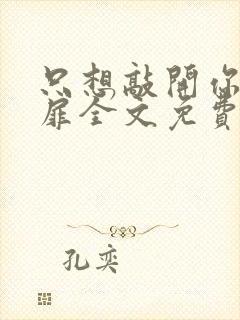 只想敲開你
扉全文免費
孔奕